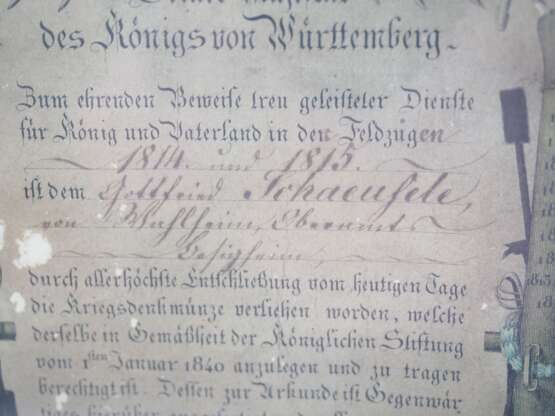 Seiner Majestät
des Königs von Württemberg.
Zum ehrenden Beweise treu geleisteter Dienste
für König und Vaterland in den Feldzügen
1814. und 1815.
ist dem Gottfried Schaeufele,
von Wahlheim, Oberamts
Besigheim,
durch allerhöchste Entschließung vom heutigen Tage
die Kriegsdenkmünze verliehen worden, welche
derselbe in Gemäßheit der Königlichen Stiftung
vom 1sten Januar 1840 anzulegen und zu tragen
berechtigt ist. Dessen zur Urkunde ist Gegenwär